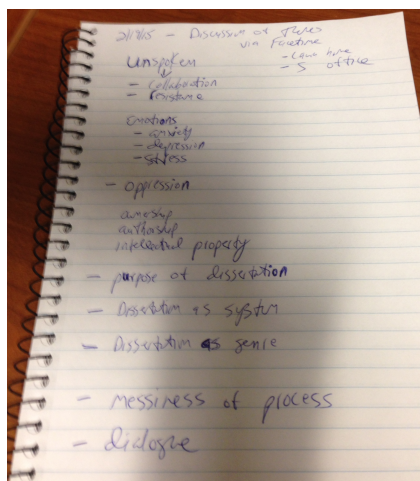 2/17/15 - Discussion of Themes
via Facetime
- home
- S office
Unspoken
- collaboration
- resistance
Emotions
- anxiety
- depression
- stress
- oppression
ownership
authorship
intellectual property
- purpose of dissertation
- Dissertation as system
- Dissertation as genre
- messiness of process
- dialogue